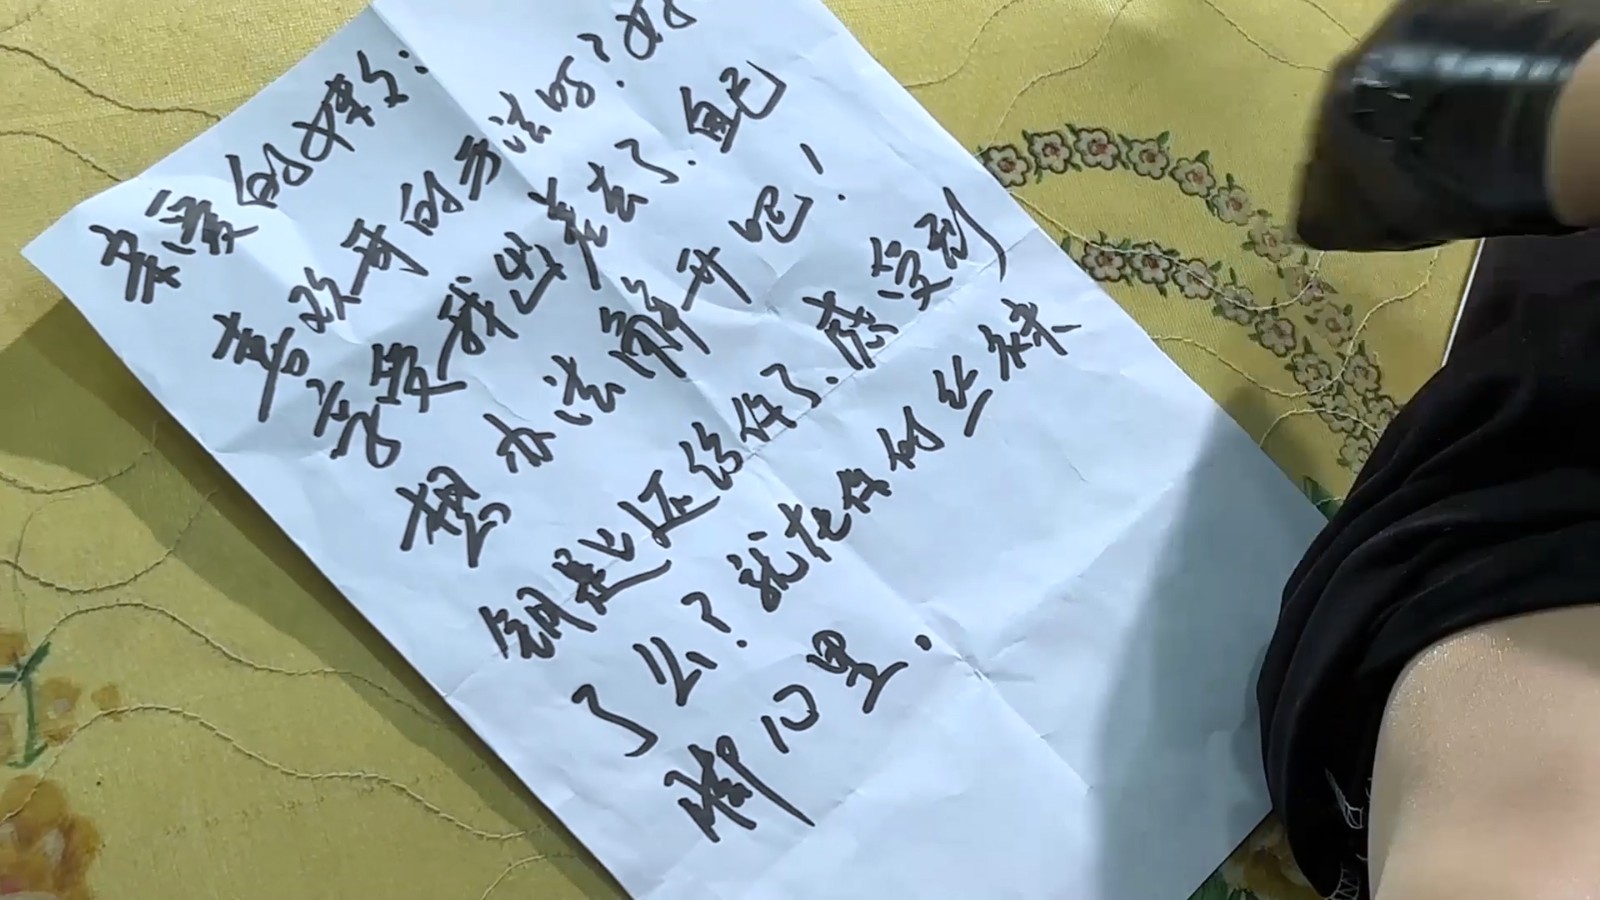 亲爱的嫩:
喜欢哥的方法吗?好
享受我出差去了.自己
想办法解开吧!
钥匙还给你了.感受到
了么?就在你的丝袜
脚心里.